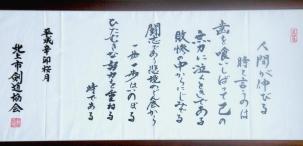 人間が伸びる
時と言うのは
歯を食いしばって己の
無力に泣くときである
敗惨の中からにじみでる
闘志であり悲境のどん底から
一歩一歩はいのぼる
ひたむきな努力を重ねる
時である
平成辛卯桜月
北上市剣道協会